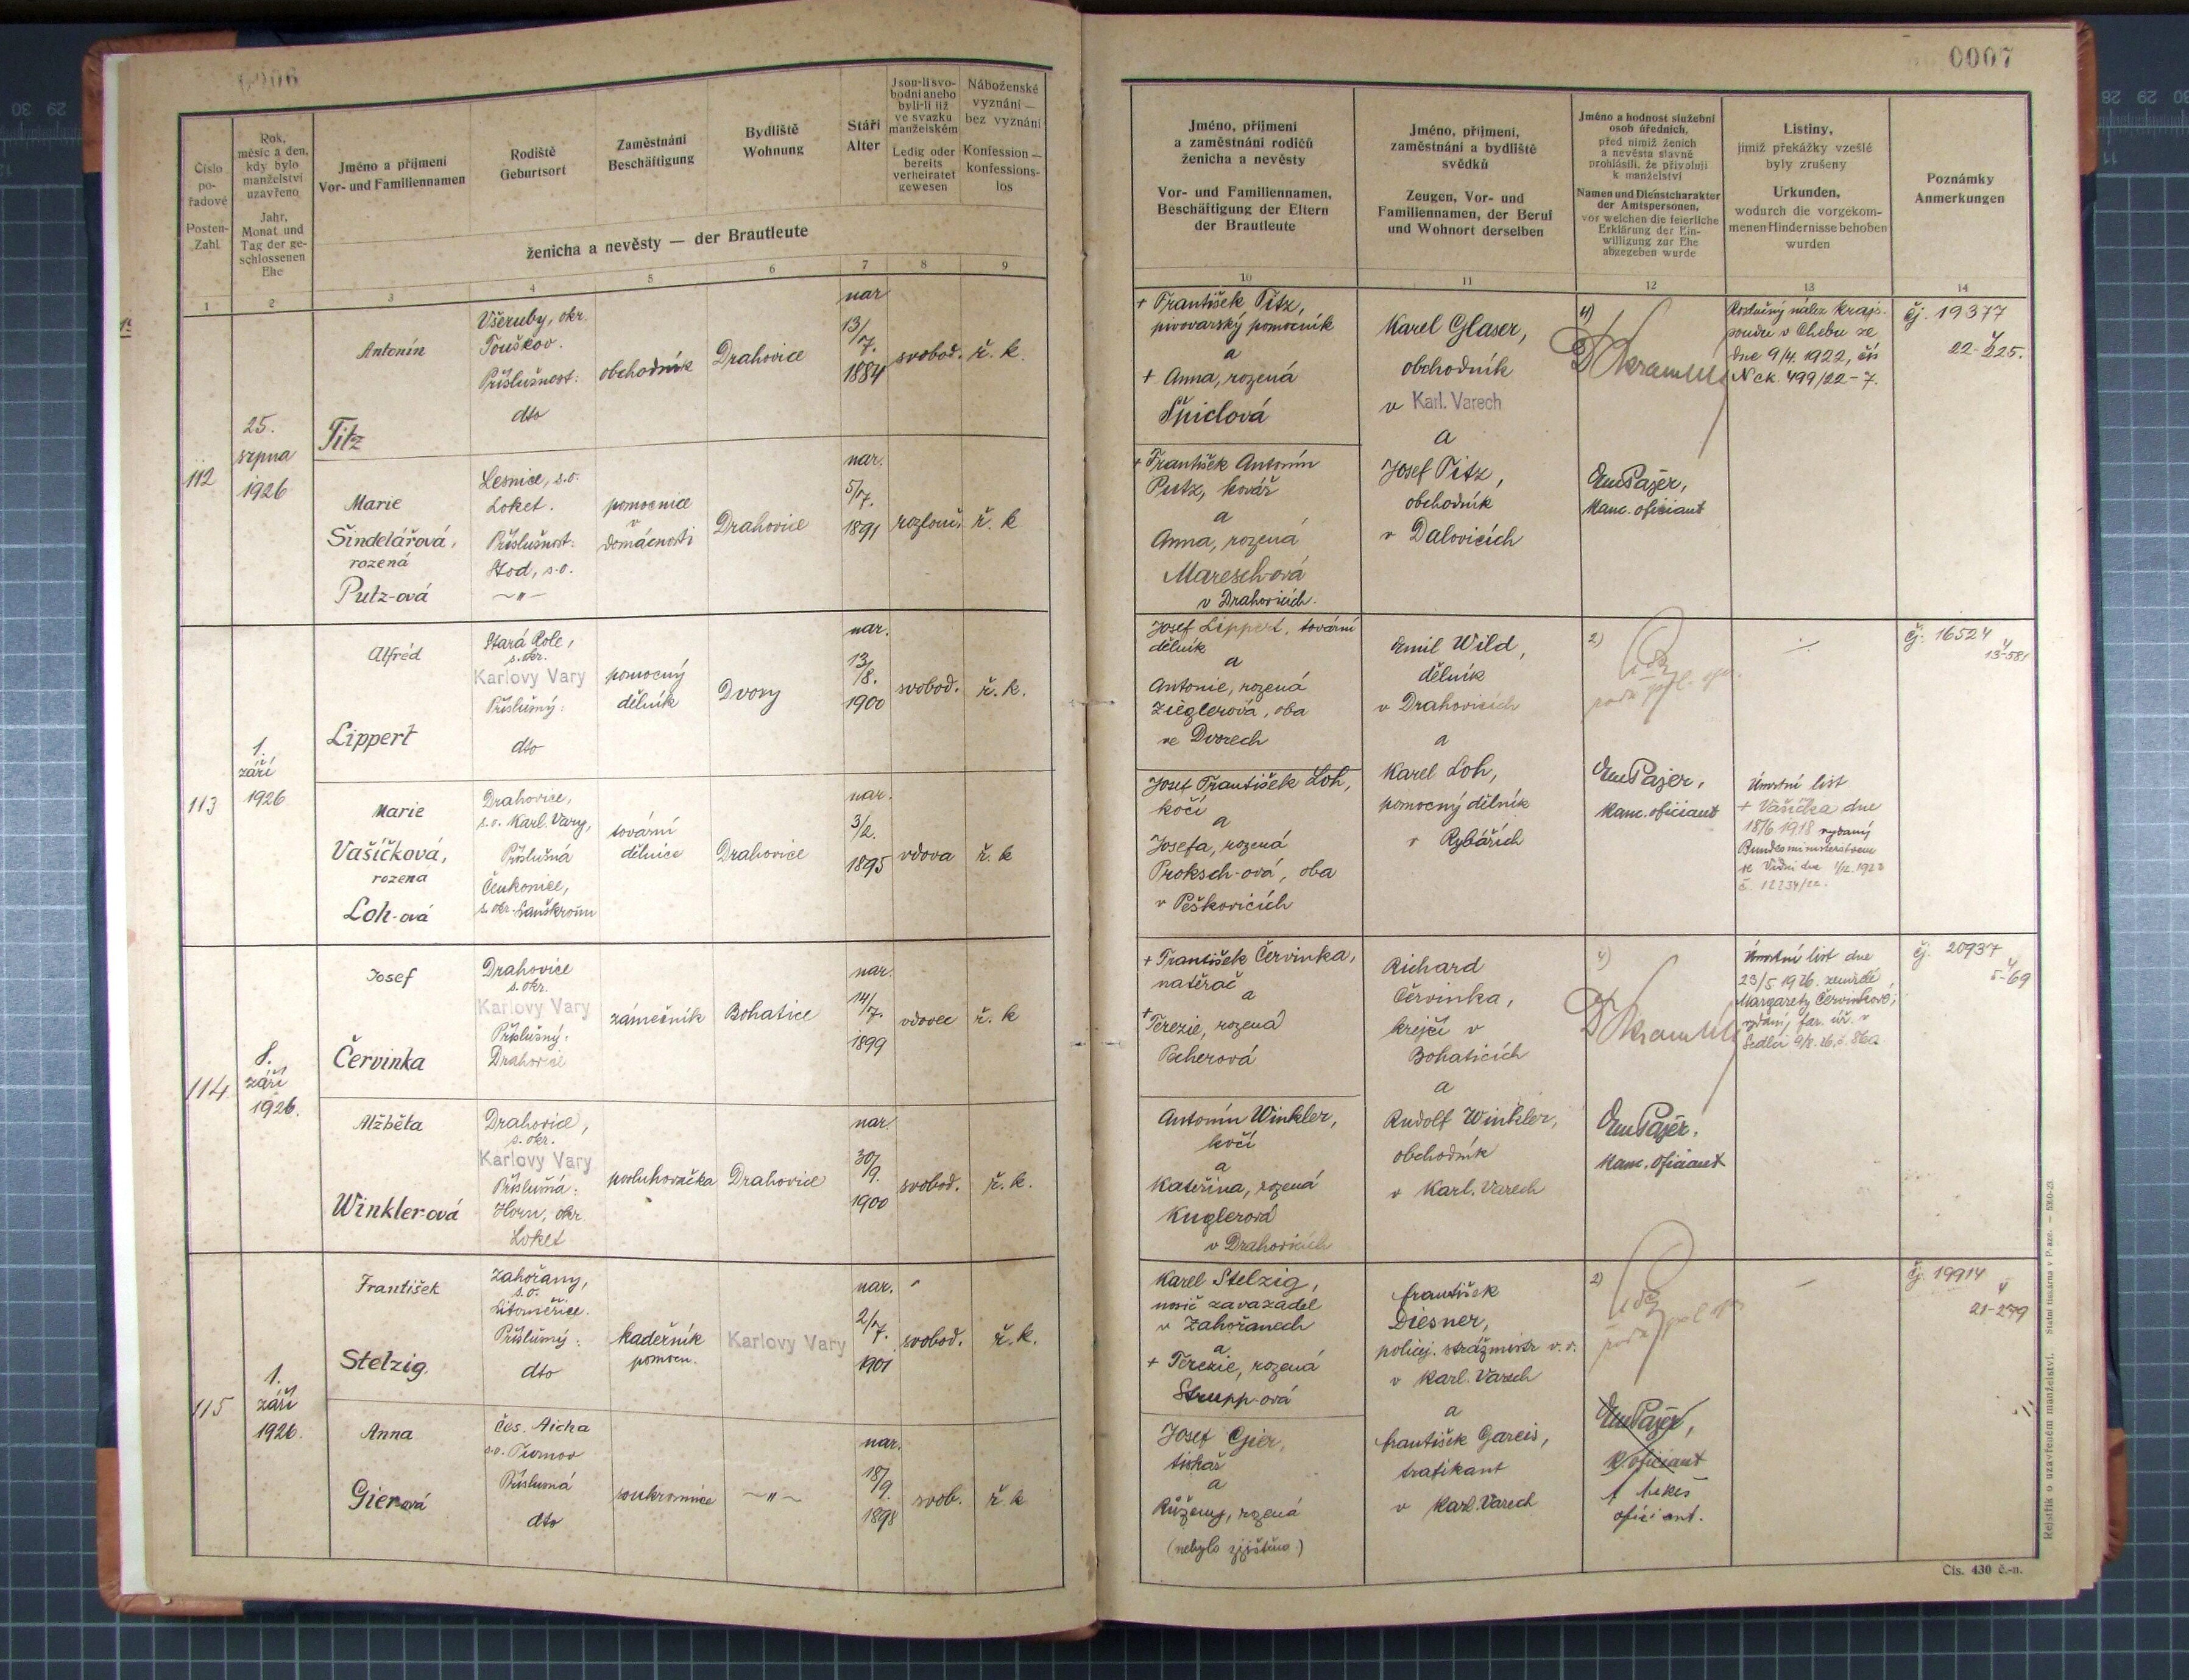 0007
Číslo po-řadové
Posten-Zahl
Rok, měsíc a den, kdy bylo manželství uzavřeno
Jahr, Monat und Tag der ge-schlossenen Ehe
Jméno a příjmení
Vor- und Familiennamen
Rodiště
Geburtsort
Zaměstnání
Beschäftigung
Bydliště
Wohnung
Stáří
Alter
Jsou-li svo-bodni anebo byli-li již ve svazku manželském
Ledig oder bereits verheiratet gewesen
Náboženské vyznání — bez vyznání
Konfession — konfessions-los
ženicha a nevěsty — der Brautleute
1 2 3 4 5 6 7 8 9
112
25.
srpna
1926
Antonín
Titz
Všeruby, okr.
Touškov.
Příslušnost:
dto
obchodník
Drahovice
nar
13/7.
1884
svobod.
ř. k.
Marie
Šindelářová,
rozená
Putz-ová
Lesnice, s.o.
Loket.
Příslušnost:
Stod, s.o.
~"~
pomocnice
v
domácnosti
Drahovice
nar.
5/7.
1891
rozlouč.
ř. k.
113
1.
září
1926
Alfréd
Lippert
Stará Role,
s. okr.
Karlovy Vary
Příslušný:
dto
pomocný
dělník
Dvory
nar.
13/8.
1900
svobod.
ř. k.
Marie
Vašíčková,
rozená
Loh-ová
Drahovice,
s.o. Karl. Vary,
Příslušná
Čenkovice,
s. okr. Lanškroun
tovární
dělnice
Drahovice
nar.
3/2.
1895
vdova
ř. k
114
8.
září
1926.
Josef
Červinka
Drahovice
s. okr.
Karlovy Vary
Příslušný:
Drahovice
zámečník
Bohatice
nar.
14/7.
1899
vdovec
ř. k
Alžběta
Winkler-ová
Drahovice,
s. okr.
Karlovy Vary
Příslušná:
Horn, okr.
Loket
posluhovačka
Drahovice
nar.
30/9.
1900
svobod.
ř. k.
115
1.
září
1926.
František
Stelzig.
Zahořany,
s.o.
Litoměřice.
Příslušný:
dto
kadeřník
pomocn.
Karlovy Vary
nar.
2/7.
1901
svobod.
ř. k.
Anna
Gier-ová
Čes. Aicha
s.o. Turnov
Příslušná
dto
soukromnice
~"~
nar.
18/9.
1898
svob.
ř. k
Jméno, příjmení a zaměstnání rodičů ženicha a nevěsty
Vor- und Familiennamen, Beschäftigung der Eltern der Brautleute
Jméno, příjmení, zaměstnání a bydliště svědků
Zeugen, Vor- und Familiennamen, der Beruf und Wohnort derselben
Jméno a hodnost služební osob úředních, před nimiž ženich a nevěsta slavně prohlásili, že přivolují k manželství
Namen und Dienstcharakter der Amtspersonen, vor welchen die feierliche Erklärung der Ein-willigung zur Ehe abgegeben wurde
Listiny, jimiž překážky vzešlé byly zrušeny
Urkunden, wodurch die vorgekom-menen Hindernisse behoben wurden
Poznámky
Anmerkungen
10 11 12 13 14
+ František Titz,
pivovarský pomocník
a
+ Anna, rozená
Šniclová
Karel Glaser,
obchodník
v Karl. Varech
a
Josef Titz,
obchodník
v Dalovicích
4)
Em Pajer,
kanc. oficiant
Rozlučný nález krajs.
soudu v Chebu ze
dne 9/4. 1922, čís
Nck. 499/22-7.
čj. 19377
22-225.
+ František Antonín
Putz, kovář
a
Anna, rozená
Maresch-ová
v Drahovicích.
Josef Lippert, tovární
dělník
a
Antonie, rozená
Zieglerová, oba
ve Dvorech
Emil Wild,
dělník
v Drahovicích
a
Karel Loh,
pomocný dělník
v Rybářích
2)
Em Pajer,
kanc. oficiant
čj. 16524
13-581
Josef František Loh,
kočí
a
Josefa, rozená
Proksch-ová, oba
v Peškovicích
Úmrtní list
+ Vašíčka dne
18/6. 1918 vydaný
Bundesministerstvem
ve Vídni dne
+ František Červinka,
natěrač
a
+ Terezie, rozená
Pecherová
Richard
Červinka,
krejčí v
Bohaticích
a
Rudolf Winkler,
obchodník
v Karl. Varech
4)
Em Pajer.
kanc. oficiant
Úmrtní list dne
23/5 1926. zemřelé
Margarety Červinkové,
vydaný far. úř. v
Sedlci 9/8. 26, č. 860
čj. 20937
5-69
Antonín Winkler,
kočí
a
Kateřina, rozená
Kuglerová
v Drahovicích
Karel Stelzig,
nosič zavazadel
v Zahořanech
a
+ Terezie, rozená
Strupp-ová
František
Diesner,
policej. strážmistr v. v.
v Karl. Varech
a
František Gareis,
trafikant
v Karl. Varech
2)
Em Pajer,
oficiant
oficiant.
čj. 19914
21-279
Josef Gier,
tiskař
a
Růženy, rozená
(nebylo zjištěno)
Rejstřík o uzavřeném manželství.
Státní tiskárna v Praze. — 5360-21
Čís. 430 č.-n.